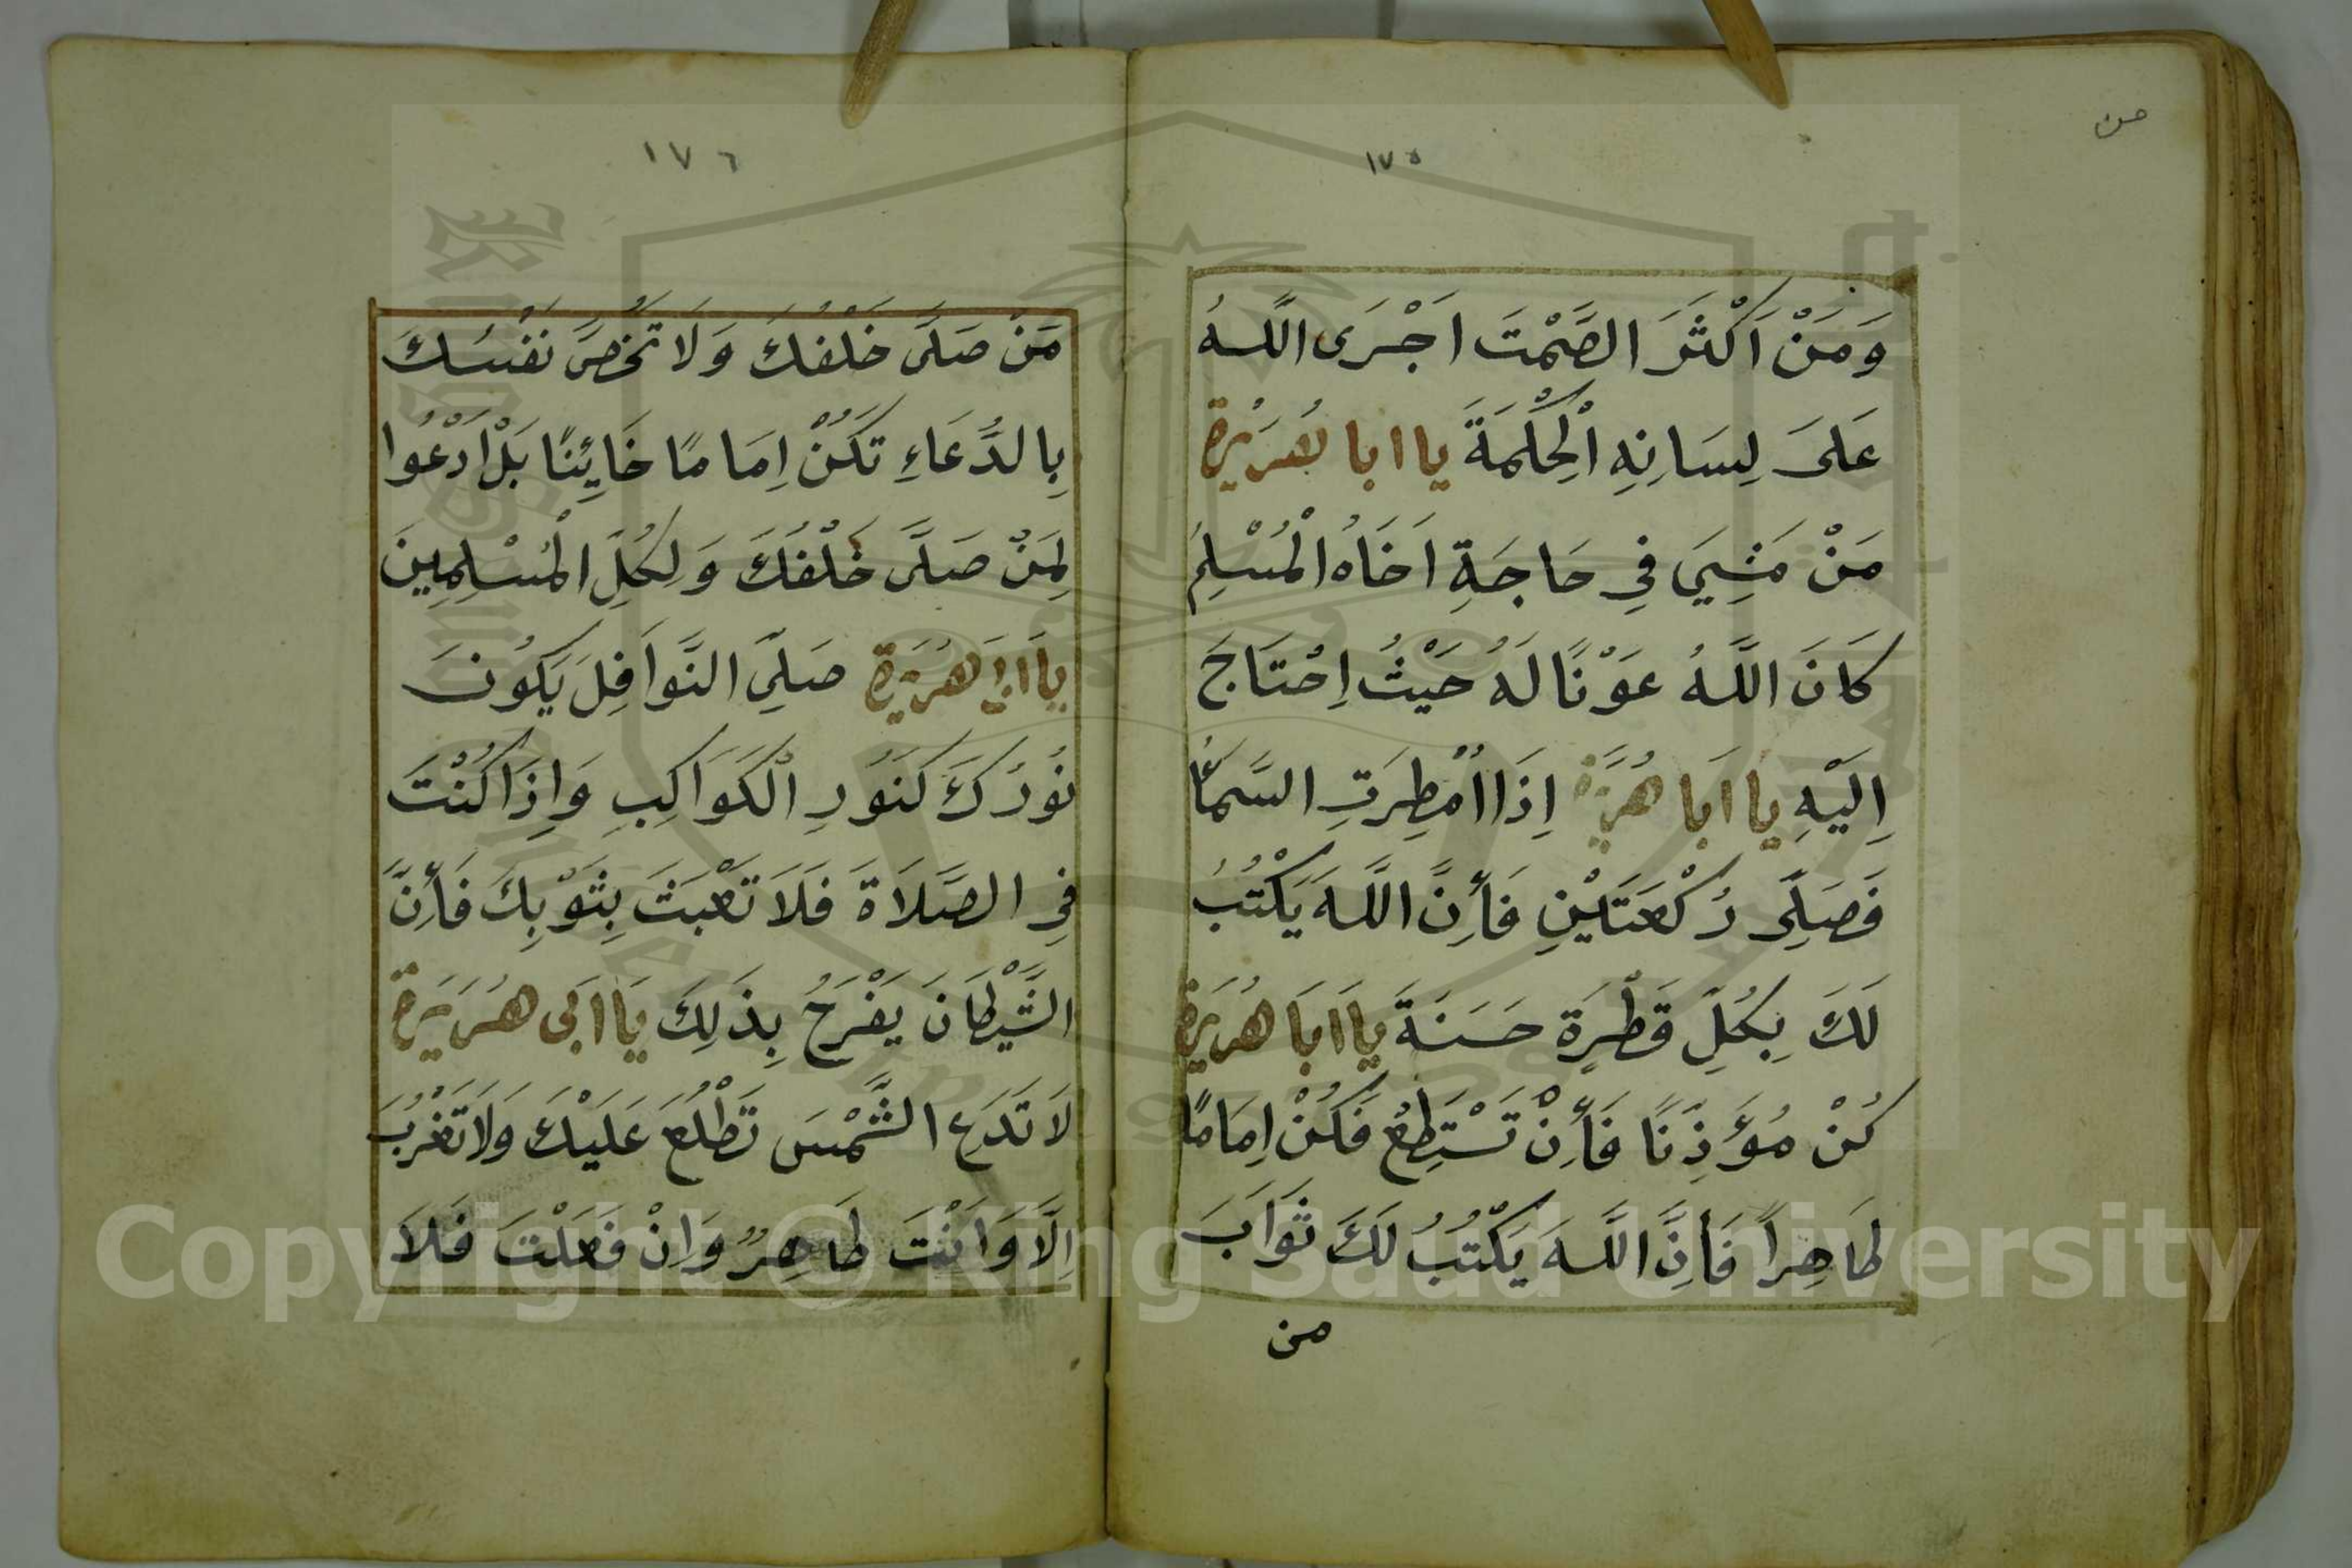 من
١٧٥
وَمَنْ اَكْثَرَ الصَّمْتَ اَجْرَى اللّٰهُ
عَلَىَ لِسَانِهِ الْحِكْمَةَ يا ابا هُرَيْرة
مَنْ مَشِيَ فِي حَاجَةِ اَخَاهُ الْمُسْلِمُ
كَانَ اللَّهُ عَوْنًا لَهُ حَيْثُ اِحْتَاجَ
اِلَيْهِ يَا اَبَا هُرَيْرَة اِذَا اُمْطِرَتِ السَّمَاُ
فَصَلِّى رُكْعَتَيْنِ فَأِنَّ اللَّهَ يَكْتُبُ
لَكَ بِكُلِّ قَطْرَةٍ حَسَنَةَ يَا اَبَا هُرَيْرَة
كُنْ مُؤَذِنًا فَأِنْ تَسْتَطِعْ فَكُنْ اِمَامًا
طَاهِراً فَأِنَّ اللَّهَ يَكْتُبُ لَكَ ثَوَابَ
من
١٧٦
مَنْ صَلَّى خَلْفُكَ وَلَا تَخُصَّ نَفْسُكَ
بِالدُّعَاءِ تَكُنْ اِمَامًا خَائِنًا بَلْ اَدْعُوا
لِمَنْ صَلَّى خَلْفُكَ وَلِكُلِّ الْمُسْلِمِينَ
يَا اَبَا هُرَيْرَة صَلِّى النَّوَافِلَ يَكُونَ
نُورُكَ كَنُورِ الْكَوَاكِبِ وَاِذَا كُنْتَ
فِي الصَّلَاةَ فَلَا تَعْبَثَ بِثَوْبِكَ فَأِنَّ
الشَّيْطَانَ يَفْرَحُ بِذَلِكَ يَا اَبى هُرَيْرَة
لَا تَدَعِ الشَّمْسَ تَطْلُعَ عَلَيْكَ وَلَا تَغْرُبَ
اِلَّا وَاَنْتَ طَاهِرٌ وَاِنْ فَعَلْتَ فَلَا
Copyright © King Saud University